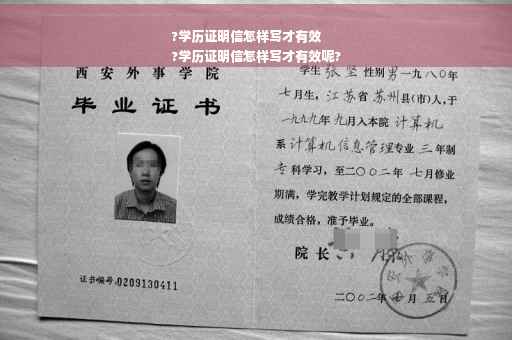 ?学历证明信怎样写才有效
?学历证明信怎样写才有效呢?
西安外事学院
毕业证书
证书编号:0209130411
学生 张坚 性别 男 一九八〇年
七月生, 江苏省 苏州县(市)人,于
一九九九年九月入本院 计算机
系 计算机信息管理专业 三 年制
专科学习,至二〇〇二年 七月修业
期满,学完教学计划规定的全部课程,
成绩合格,准予毕业。
院长
二〇〇二年 月 五日